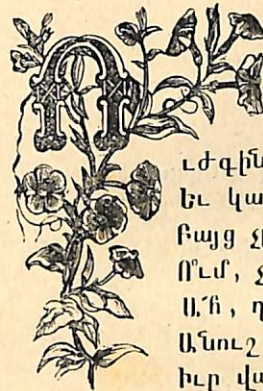 Ուժգին
Եւ կա
Բայց
Ո՞ւմ,
Ա՜հ,
Անուշ
Իւր վա